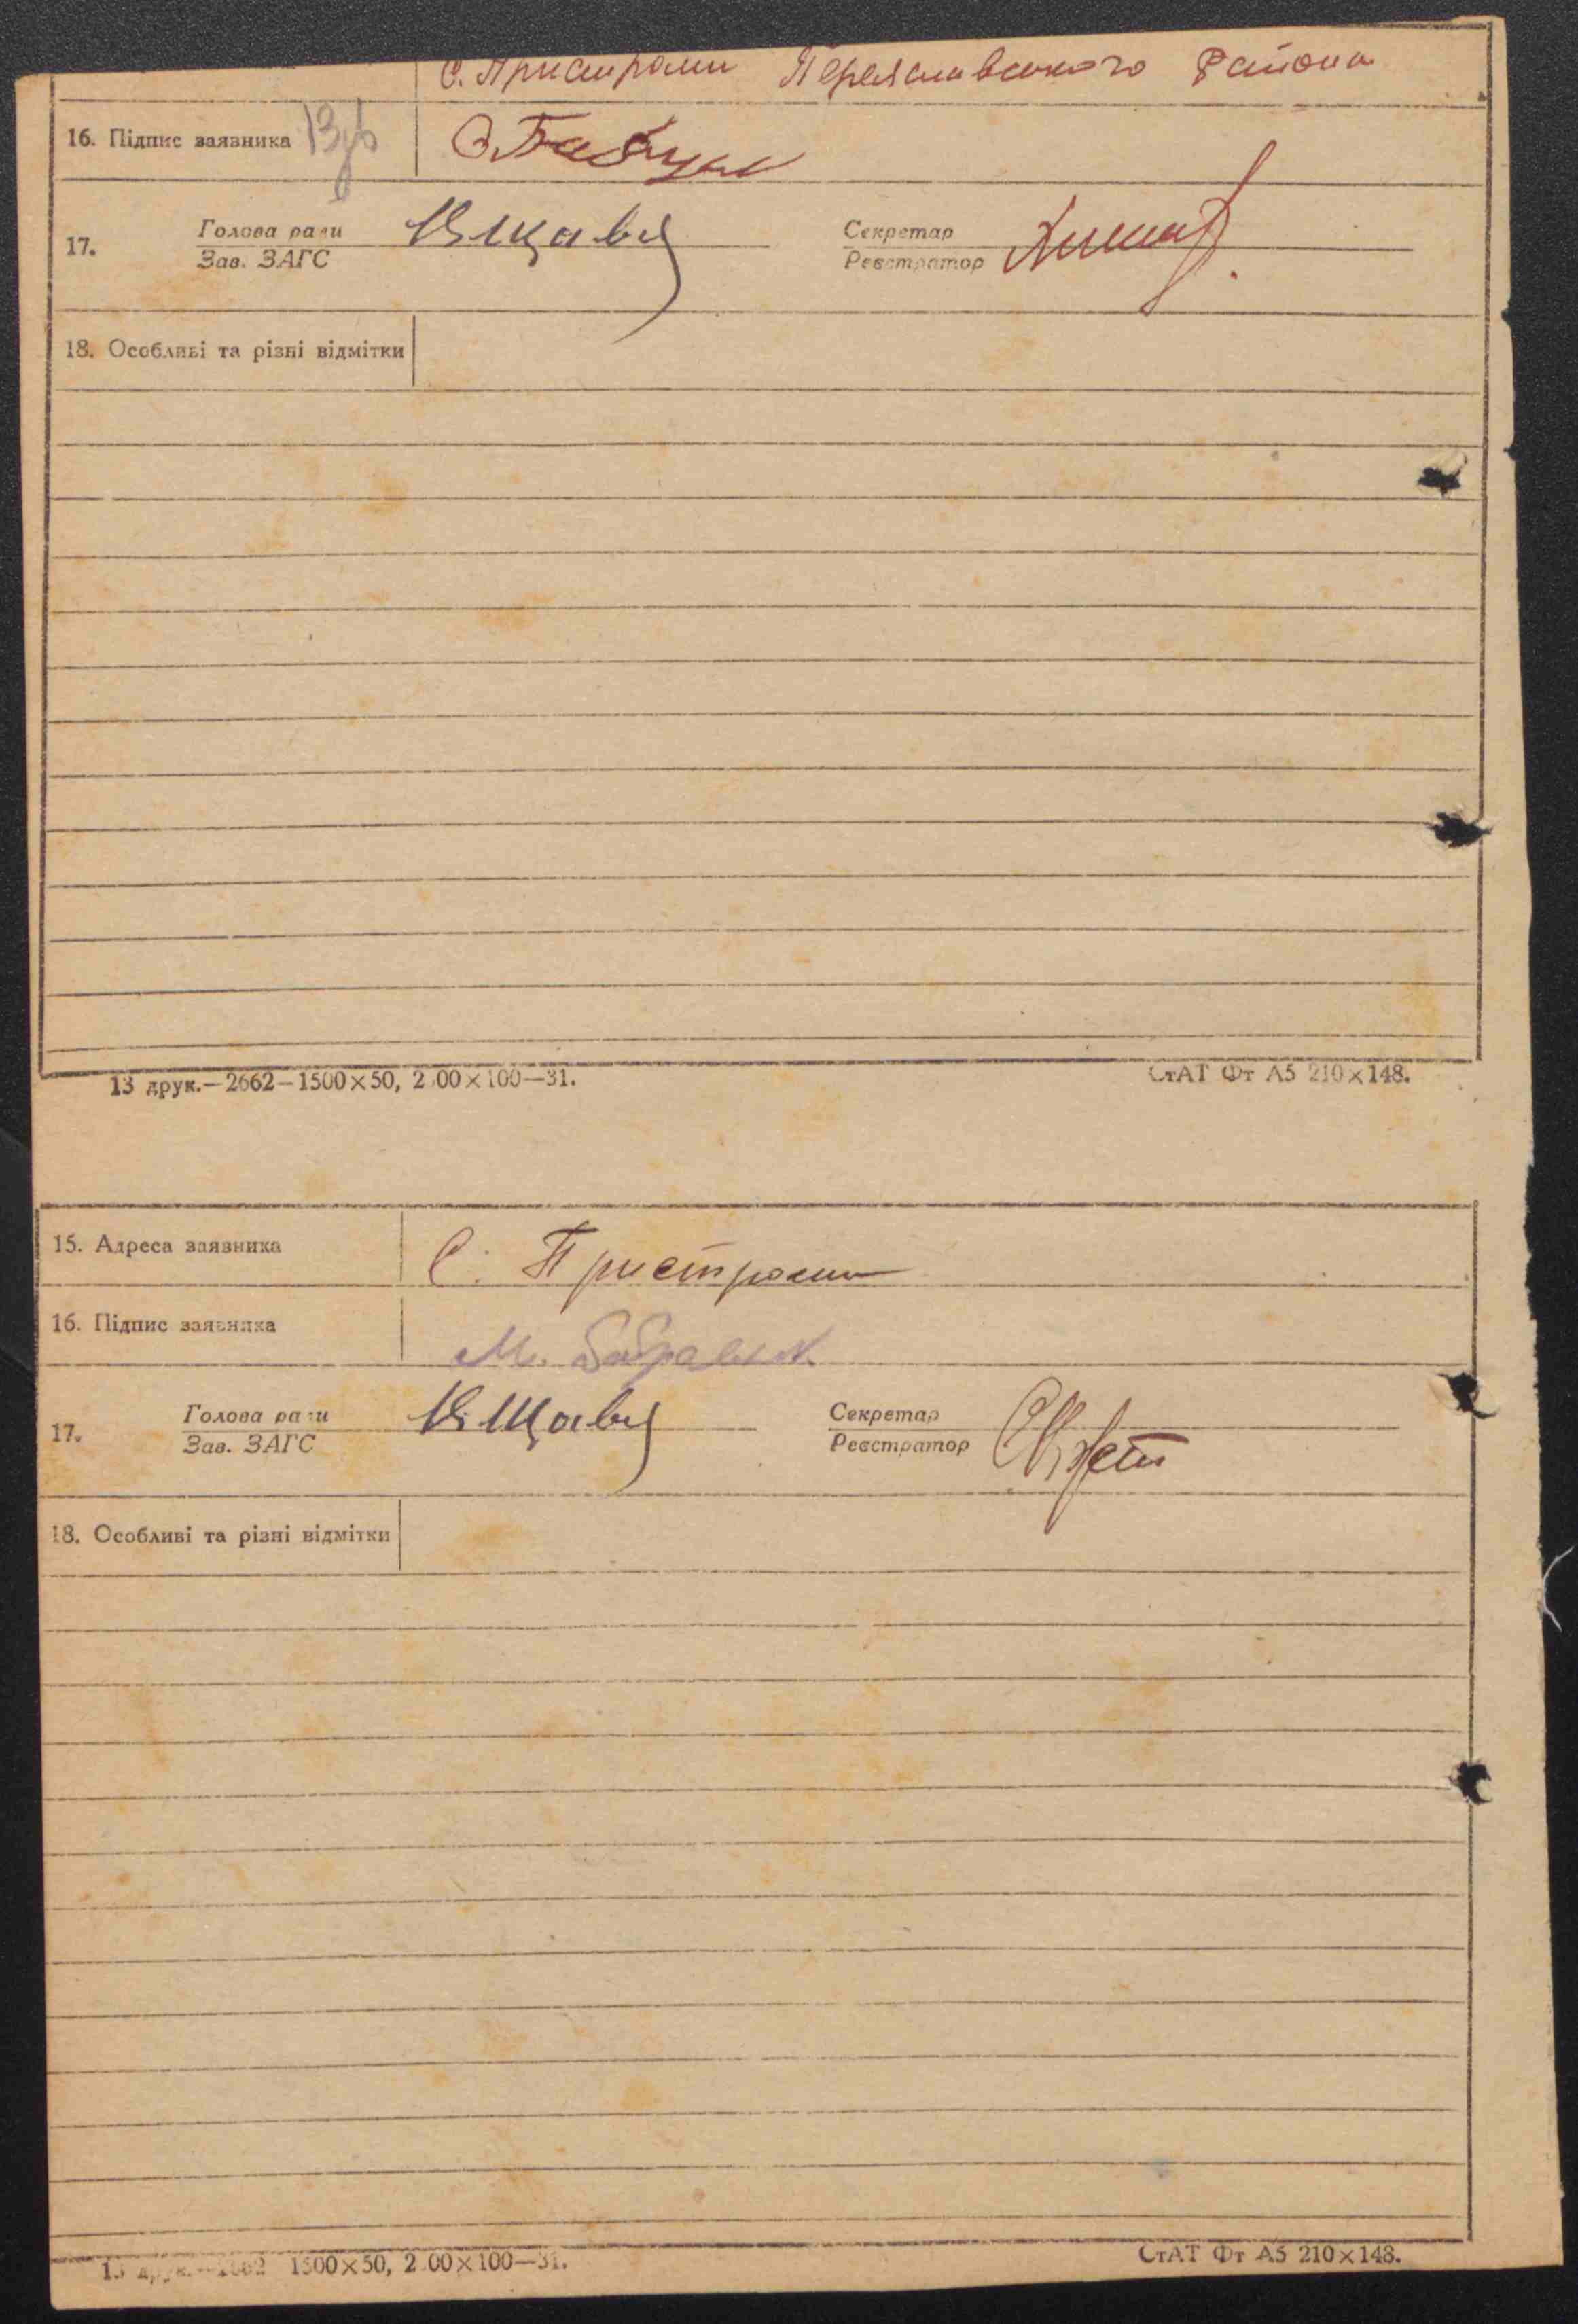 С. Пристроми Переяславського Района
16. Підпис заявника
17. Голова ради Секретар
Зав. ЗАГС Реєстратор
18. Особливі та різні відмітки
13 друк.—2662—1500×50, 2 00×100—31. СтАТ Фт А5 210×148.
15. Адреса заявника С. Пристроми
16. Підпис заявника М.
17. Голова ради Секретар
Зав. ЗАГС Реєстратор
18. Особливі та різні відмітки
1500×50, 2 00×100—31. СтАТ Фт А5 210×148.